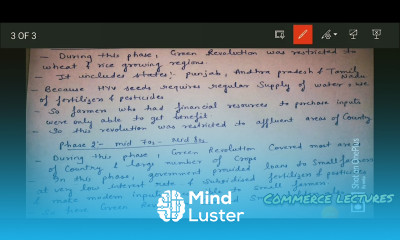 3 OF 3
- During this phase, Green Revolution was restricted to
wheat & rice growing regions.
- It includes states:- punjab, Andhra pradesh & Tamil
Nadu
- Because HYV seeds requires regular Supply of water & use
of fertilizers & pesticides
- So farmers who had financial resources to purchase inputs
were only able to get benefit
- So this revolution was restricted to affluent areas of Country
Phase 2:- mid 70s - mid 80s
- During this phase, Green Revolution Covered most areas
of Country & large number of Crops
- In this phase, government provided loans to Small farmers
at very low interest rate & subsidised fertilizers & pesticides
& make modern inputs to small farmers.
Green
COMMERCE LECTURES
Mind
Luster